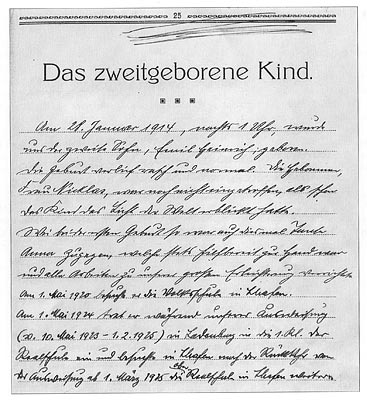 25
Das zweitgeborene Kind.
Am 21. Januar 1914, nachts 1 Uhr, wurde
uns der zweite Sohn, Emil Heinrich, geboren.
Die Geburt verlief rasch und normal. Die Hebamme,
Frau Nicklas, war noch nicht eingetroffen, als schon
das Kind das Licht der Welt erblickt hatte.
Wie bei der ersten Geburt so war auch diesmal Tante
Anna zugegen, welche stets hilfbereit zur Hand war
und alle Arbeiten zu unserer großen Erleichterung verrichtete.
Am 1. Mai 1920 besuchte er die Volksschule in
Am 1. Mai 1924 trat er während unserer Ausweisung
(v. 10. Mai 1923 - 1.2.1925) in Ladenburg in die 1. Kl. der
Realschule ein und besuchte in nach der Rückkehr von
der Ausweisung ab 1. März 1925 die Realschule in weiter.